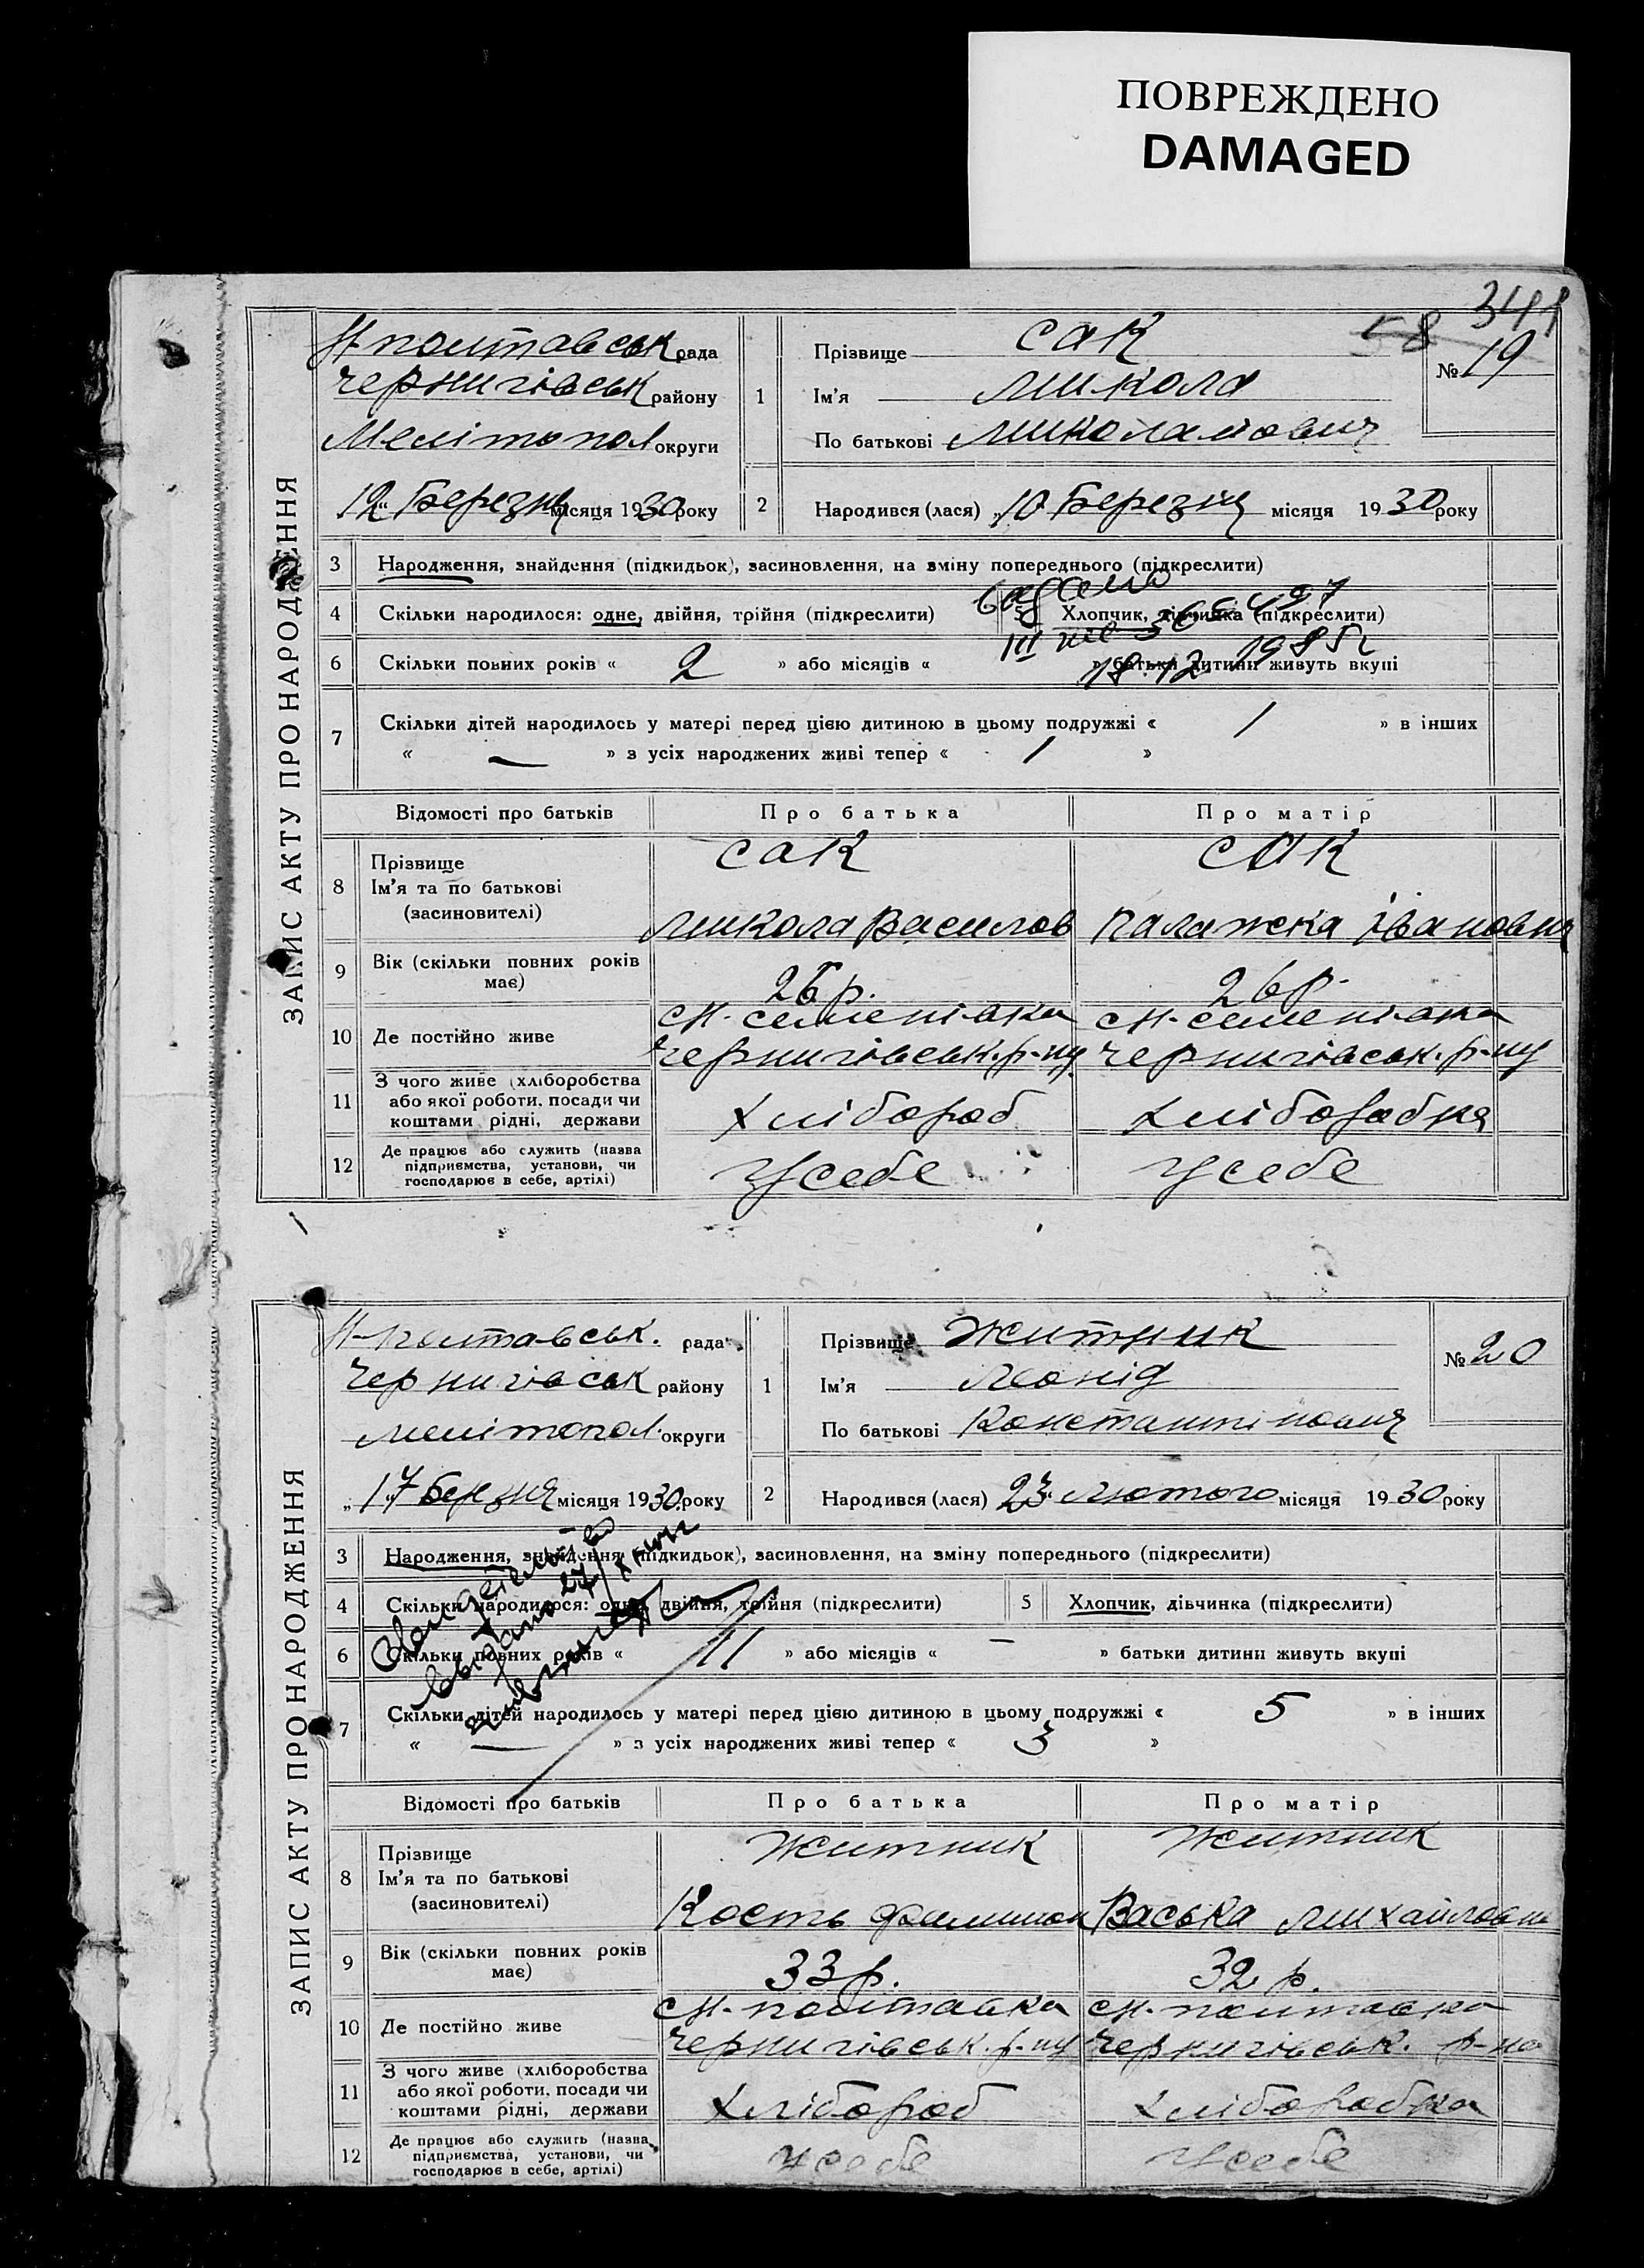 ПОВРЕЖДЕНО
DAMAGED
344
58
ЗАПИС АКТУ ПРО НАРОДЖЕННЯ
Н полтавськ рада
Чернигівськ району
Мелітопол округи
„12" Березня місяця 1930 року
1
Прізвище Сак
Ім'я Микола
По батькові Миколайович
№ 19
2 Народився (лася) „10" Березня місяця 1930 року
3 Народження, знайдення (підкидьок), засиновлення, на зміну попереднього (підкреслити)
4 Скільки народилося: одне, двійня, трійня (підкреслити) 5 Хлопчик, дівчинка (підкреслити)
6 Скільки повних років « 2 » або місяців « » батьки дитини живуть вкупі
18.12. 1985г
7 Скільки дітей народилось у матері перед цією дитиною в цьому подружжі « 1 » в інших
« — » з усіх народжених живі тепер « 1 »
Відомості про батьків Про батька Про матір
8 Прізвище
Ім'я та по батькові
(засиновителі)
Сак Сак
Микола Васильов Палажка Івановна
9 Вік (скільки повних років має) 26 р. 26 р.
10 Де постійно живе
с Н-Семенівка с Н-Семенівка
Чернигівськ. р-ну Чернигівськ. р-ну
11 З чого живе (хліборобства
або якої роботи, посади чи
коштами рідні, держави
Хлібороб Хліборобка
12 Де працює або служить (назва
підприємства, установи, чи
господарює в себе, артілі)
У себе У себе
ЗАПИС АКТУ ПРО НАРОДЖЕННЯ
Н-полтавськ. рада
Чернигівськ району
Мелітопол. округи
„17" Березня місяця 1930 року
1
Прізвище Житник
Ім'я Леонід
По батькові Константінович
№ 20
2 Народився (лася) 23 Лютого місяця 1930 року
3 Народження, знайдення (підкидьок), засиновлення, на зміну попереднього (підкреслити)
4 Скільки народилося: одне, двійня, трійня (підкреслити) 5 Хлопчик, дівчинка (підкреслити)
6 Скільки повних років « 11 » або місяців « — » батьки дитини живуть вкупі
7 Скільки дітей народилось у матері перед цією дитиною в цьому подружжі « 5 » в інших
« — » з усіх народжених живі тепер « 3 »
Відомості про батьків Про батька Про матір
8 Прізвище
Ім'я та по батькові
(засиновителі)
Житник Житник
Кость Васька Михайловна
9 Вік (скільки повних років має) 33 р. 32 р.
10 Де постійно живе
с Н-полтавка с Н-полтавка
Чернигівськ. р-ну Чернигівськ. р-на
11 З чого живе (хліборобства
або якої роботи, посади чи
коштами рідні, держави
Хлібороб Хліборобка
12 Де працює або служить (назва
підприємства, установи, чи
господарює в себе, артілі)
У себе У себе